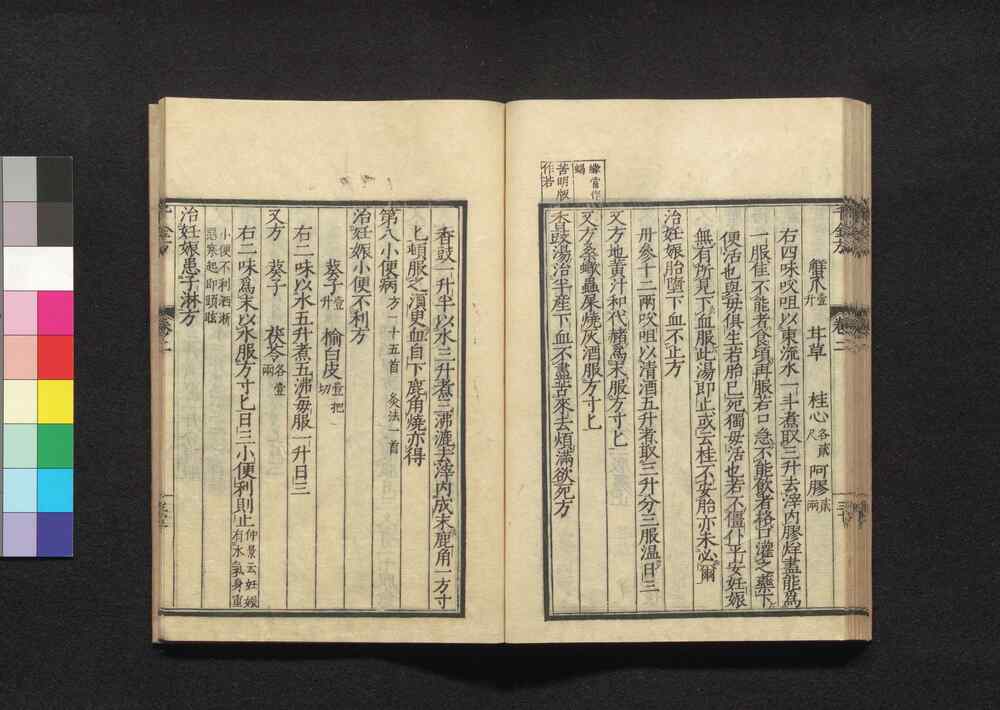 蟹當作
蝎
苦明版
作若
蟹爪壹升　甘草　桂心各貳尺　阿膠貳兩
右四味㕮咀以東流水一斗煮取三升去滓内膠烊盡能爲
一服佳不能者食頃再服若口急不能飲者格口灌之藥下
便活也與母俱生若胎已死獨母活也若不僵仆平安妊娠
無有所見下血服此湯即止或云桂不安胎亦未必爾
治妊娠胎墮下血不止方
丹參十二兩㕮咀以清酒五升煮取三升分三服温日三
又方地黃汁和代赭爲末服方寸匕
又方桑蠍蟲屎燒灰酒服方寸匕
香豉湯治半產下血不盡苦來去煩滿欲死方
香豉一升半以水三升煮三沸漉去滓内成末鹿角一方寸
匕頓服之須臾血自下鹿角燒亦得
第八小便病方一十五首　灸法一首
治妊娠小便不利方
葵子壹升　榆白皮壹把切
右二味以水五升煮五沸每服一升日三
又方　葵子　茯苓各壹兩
右二味爲末以水服方寸匕日三小便利則止仲景云妊娠有水氣身重
小便不利洒淅惡寒起即頭眩
治妊娠患子淋方
千金方
卷二
三十